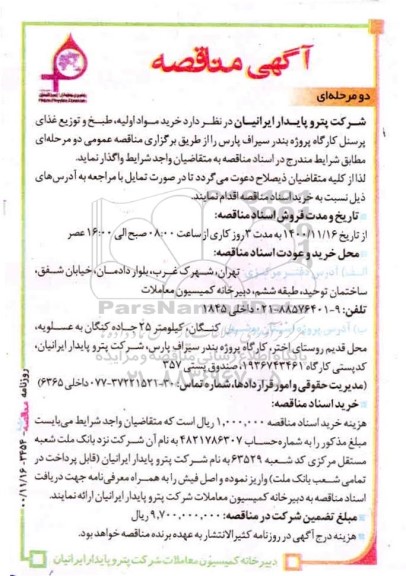 آگهی مناقصه
دو مرحله‌ای
شرکت پترو پایدار ایرانیان در نظر دارد خرید مواد اولیه، طبخ و توزیع غذای
پرسنل کارگاه پروژه بندر سیراف پارس را از طریق برگزاری مناقصه عمومی دو مرحله‌ای
مطابق شرایط مندرج در اسناد مناقصه به متقاضیان واجد شرایط واگذار نماید.
لذا از کلیه متقاضیان ذیصلاح دعوت می‌گردد تا در صورت تمایل با مراجعه به آدرس‌های
ذیل نسبت به خرید اسناد مناقصه اقدام نمایند.
تاریخ و مدت فروش اسناد مناقصه:
از تاریخ ۱۴۰۰/۱۱/۱۶ به مدت ۳ روز کاری از ساعت ۰۸:۰۰ صبح الی ۱۶:۰۰ عصر
محل خرید و عودت اسناد مناقصه:
الف) آدرس دفتر مرکزی: تهران، شهرک غرب، بلوار دادمان، خیابان شفق،
ساختمان توحید، طبقه ششم، دبیرخانه کمیسیون معاملات
تلفن: ۹-۸۸۵۷۶۴۰۱-۰۲۱ داخلی ۱۸۴۵
ب) آدرس پروژه: کنگان، کیلومتر ۲۵ جاده کنگان به عسلویه،
محل قدیم روستای اختر، کارگاه پروژه بندر سیراف پارس، شرکت پترو پایدار ایرانیان،
کدپستی کارگاه: ۱۹۴۶۷۴۳۴۶۱، صندوق پستی ۳۵۷
(مدیریت حقوقی و امور قراردادها، شماره تماس: ۳۰-۳۷۲۲۱۵۲۱-۰۷۷ داخلی ۶۳۶۵)
خرید اسناد مناقصه:
هزینه خرید اسناد مناقصه ۱,۰۰۰,۰۰۰ ریال است که متقاضیان واجد شرایط می‌بایست
مبلغ مذکور را به شماره حساب ۴۸۲۱۷۸۶۳۰۷ به نام آن شرکت نزد بانک ملت شعبه
مستقل مرکزی کد شعبه ۶۳۵۲۹ به نام شرکت پترو پایدار ایرانیان (قابل پرداخت در
تمامی شعب بانک ملت) واریز نموده و اصل فیش را به همراه معرفی نامه جهت دریافت
اسناد مناقصه به دبیرخانه کمیسیون معاملات شرکت پترو پایدار ایرانیان ارائه نمایند.
مبلغ تضمین شرکت در مناقصه: ۹,۷۰۰,۰۰۰,۰۰۰ ریال
هزینه درج آگهی در روزنامه کثیرالانتشار به عهده برنده مناقصه خواهد بود.
دبیرخانه کمیسیون معاملات شرکت پترو پایدار ایرانیان
روزنامه مناقصه - ۳۴۵۴ - ۰۰/۱۱/۱۶